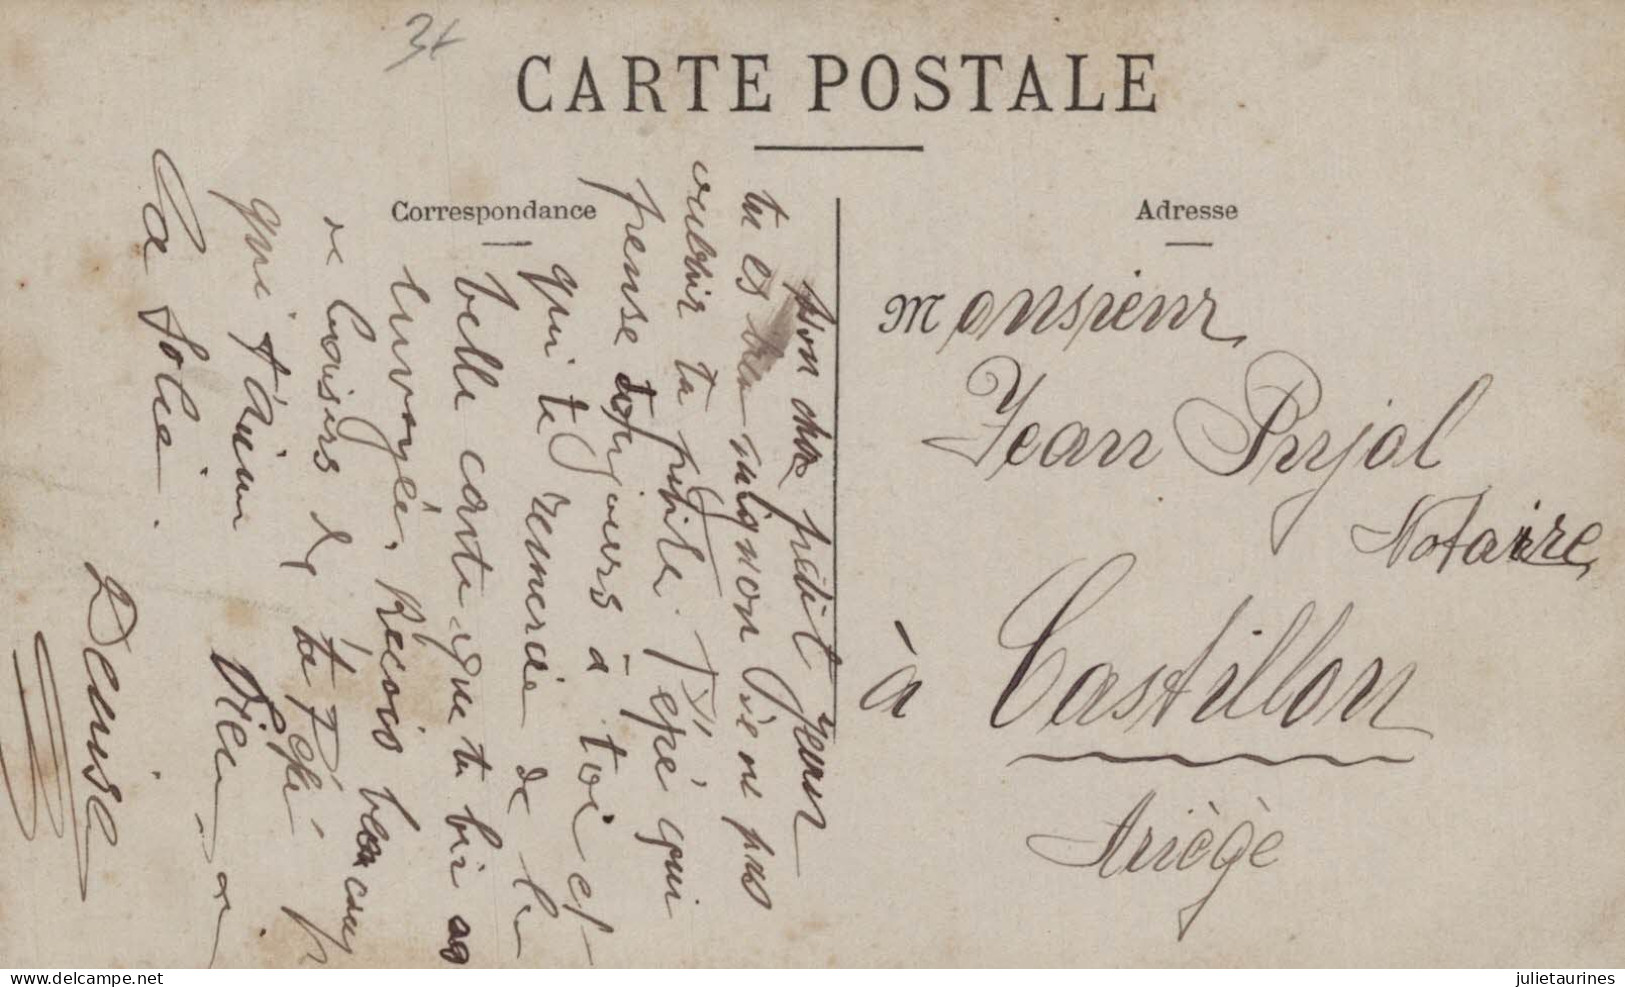 3f
CARTE POSTALE
Correspondance
Adresse
Mon cher petit Jean
tu es bien mignon de ne pas
oublier ta petite Pépé qui
pense toujours à toi et
qui te remercie de la
belle carte que tu lui as
envoyée. Reçois beaucoup
de baisers de ta Pépé
qui t'aime bien
La Tolie.
Denise
Monsieur
Jean Pujol
Notaire
à Castillon
Ariège
delcampe.net
julietaurines